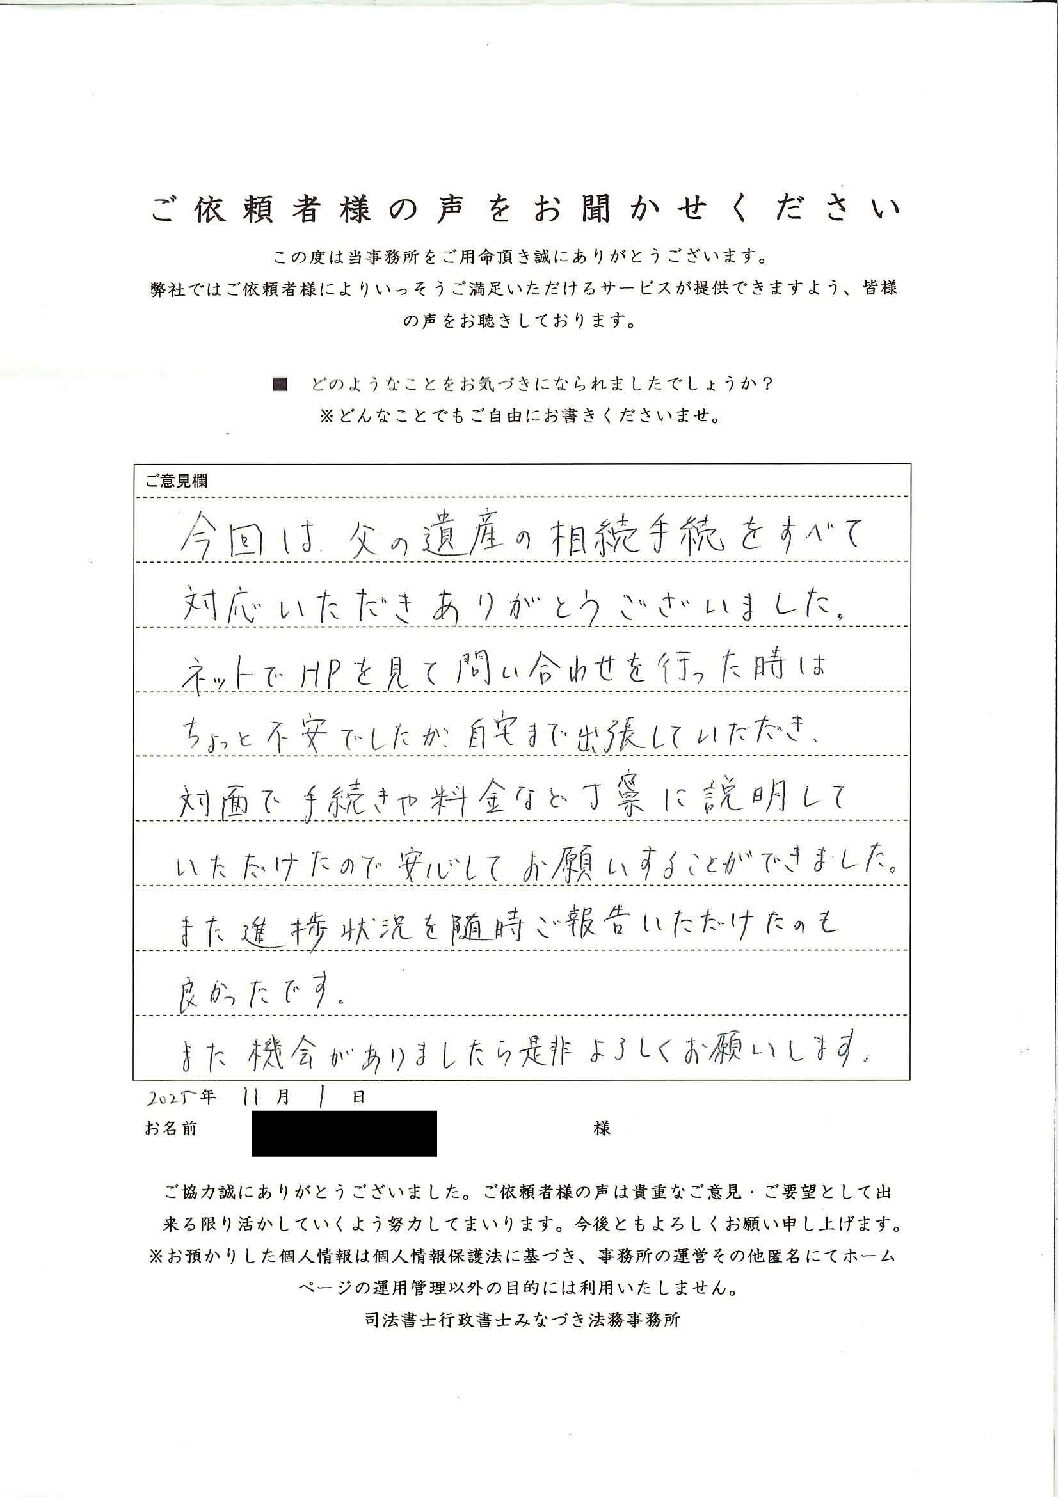 ご依頼者様の声をお聞かせください
この度は当事務所をご用命頂き誠にありがとうございます。
弊社ではご依頼者様によりいっそうご満足いただけるサービスが提供できますよう、皆様
の声をお聴きしております。
■ どのようなことをお気づきになられましたでしょうか？
※どんなことでもご自由にお書きくださいませ。
ご意見欄
今回は、父の遺産の相続手続をすべて
対応いただきありがとうございました。
ネットでHPを見て問い合わせを行った時は
ちょっと不安でしたが、自宅まで出張していただき、
対面で手続きや料金など丁寧に説明して
いただけたので安心してお願いすることができました。
また進捗状況を随時ご報告いただけたのも
良かったです。
また機会がありましたら是非よろしくお願いします。
2025年 11月 1日
お名前 様
ご協力誠にありがとうございました。ご依頼者様の声は貴重なご意見・ご要望として出
来る限り活かしていくよう努力してまいります。今後ともよろしくお願い申し上げます。
※お預かりした個人情報は個人情報保護法に基づき、事務所の運営その他匿名にてホーム
ページの運用管理以外の目的には利用いたしません。
司法書士行政書士みなづき法務事務所